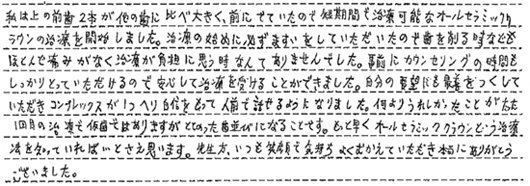 私は上の前歯2本が他の歯に比べ大きく、前にでていたので短期間で治療可能なオールセラミックク
ラウンの治療を開始しました。治療の始めに必ずますいをしていただいたので歯を削る時なども
ほとんど痛みがなく治療が負担に思う時なんてありませんでした。事前にカウンセリングの時間も
しっかりとっていただけるので安心して治療を受けることができました。自分の要望にも最善をつくして
いただきコンプレックスが1つへり自信をもって人前で話せるようになりました。何よりうれしかったことがたった
1回目の治療で仮歯ではありますがととのった歯並びになることです。もっと早くオールセラミッククラウンという治療
法を知っていればいとさえ思います。先生方、いつも笑顔で気持ちよくむかえていただき本当にありがとう
ございました。